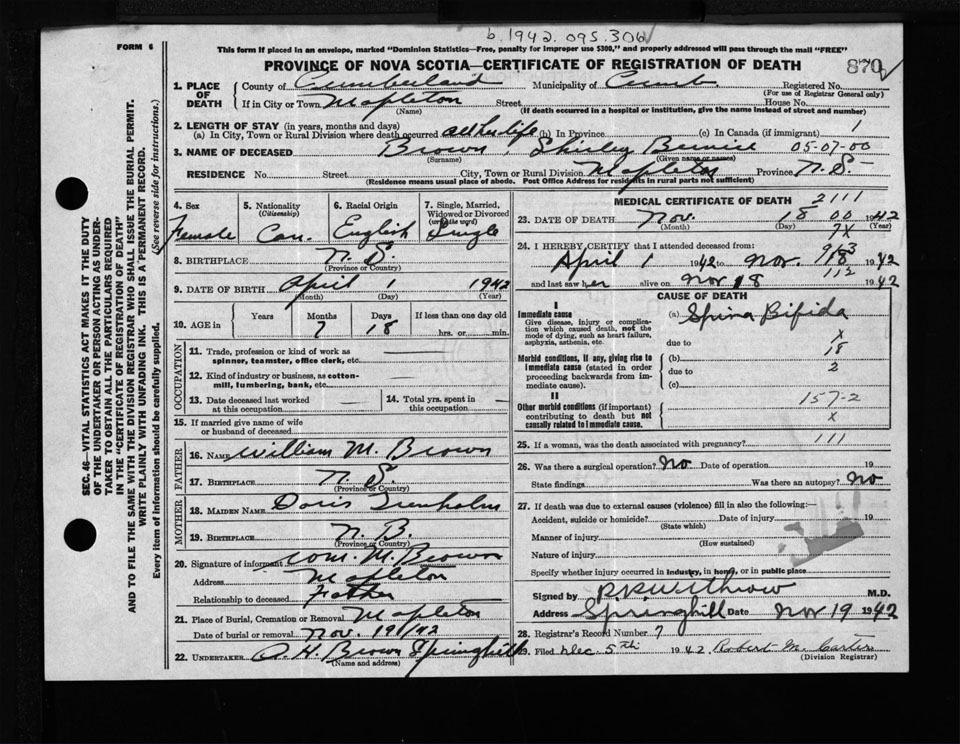 b. 1942. 095.306
FORM 6
This form if placed in an envelope, marked "Dominion Statistics—Free, penalty for improper use $300," and properly addressed will pass through the mail "FREE"
PROVINCE OF NOVA SCOTIA—CERTIFICATE OF REGISTRATION OF DEATH
870
SEC. 46—VITAL STATISTICS ACT MAKES IT THE DUTY
OF THE UNDERTAKER OR PERSON ACTING AS UNDER-
TAKER TO OBTAIN ALL THE PARTICULARS REQUIRED
IN THE "CERTIFICATE OF REGISTRATION OF DEATH"
AND TO FILE THE SAME WITH THE DIVISION REGISTRAR WHO SHALL ISSUE THE BURIAL PERMIT.
WRITE PLAINLY WITH UNFADING INK. THIS IS A PERMANENT RECORD.
Every item of information should be carefully supplied. (See reverse side for instructions.)
1. PLACE OF DEATH County of Cumberland Municipality of Cumb. Registered No.
(For use of Registrar General only)
If in City or Town Mapleton Street House No.
(Name) (If death occurred in a hospital or institution, give the name instead of street and number)
2. LENGTH OF STAY (in years, months and days)
(a) In City, Town or Rural Division where death occurred all her life (b) In Province (c) In Canada (if immigrant) 1
3. NAME OF DECEASED Brown, Shirley Bernice 05-07-00
(Surname) (Given name or names)
RESIDENCE No. Street City, Town or Rural Division Mapleton Province N.S.
(Residence means usual place of abode. Post Office Address for residents in rural parts not sufficient)
4. Sex 5. Nationality (Citizenship) 6. Racial Origin 7. Single, Married, Widowed or Divorced (write the word)
Female Can. English Single
8. BIRTHPLACE N. S.
(Province or Country)
9. DATE OF BIRTH April 1 1942
(Month) (Day) (Year)
10. AGE in Years Months Days If less than one day old
7 18 hrs. or min.
OCCUPATION
11. Trade, profession or kind of work as spinner, teamster, office clerk, etc.
12. Kind of industry or business, as cotton-mill, lumbering, bank, etc.
13. Date deceased last worked at this occupation
14. Total yrs. spent in this occupation
15. If married give name of wife or husband of deceased
FATHER
16. NAME William M. Brown
17. BIRTHPLACE N. S.
(Province or Country)
MOTHER
18. MAIDEN NAME Doris
19. BIRTHPLACE N. B.
(Province or Country)
20. Signature of informant Wm. M. Brown
Address Mapleton
Relationship to deceased Father
21. Place of Burial, Cremation or Removal Mapleton
Date of burial or removal Nov. 19/42
22. UNDERTAKER A. H. Brown Springhill
(Name and address)
MEDICAL CERTIFICATE OF DEATH
2111
23. DATE OF DEATH Nov. 18 00 1942
(Month) (Day) (Year)
7X
24. I HEREBY CERTIFY that I attended deceased from:
963
April 1 1942 to Nov. 18 1942
112
and last saw her alive on Nov 18 1942
CAUSE OF DEATH
I
Immediate cause
Give disease, injury or complication which caused death, not the mode of dying, such as heart failure, asphyxia, asthenia, etc.
(a) Spina Bifida
due to
X
18
Morbid conditions, if any, giving rise to immediate cause (stated in order proceeding backwards from immediate cause).
(b)
due to 2
(c)
II
Other morbid conditions (if important) contributing to death but not causally related to immediate cause.
157-2
X
25. If a woman, was the death associated with pregnancy? 111
26. Was there a surgical operation? No Date of operation 19
State findings Was there an autopsy? No
27. If death was due to external causes (violence) fill in also the following:—
Accident, suicide or homicide? Date of injury 19
(State which)
Manner of injury
(How sustained)
Nature of injury
Specify whether injury occurred in industry, in home, or in public place
Signed by M.D.
Address Springhill Date Nov 19 1942
28. Registrar's Record Number 7
29. Filed Dec 5th 1942 Robert M. Carter
(Division Registrar)